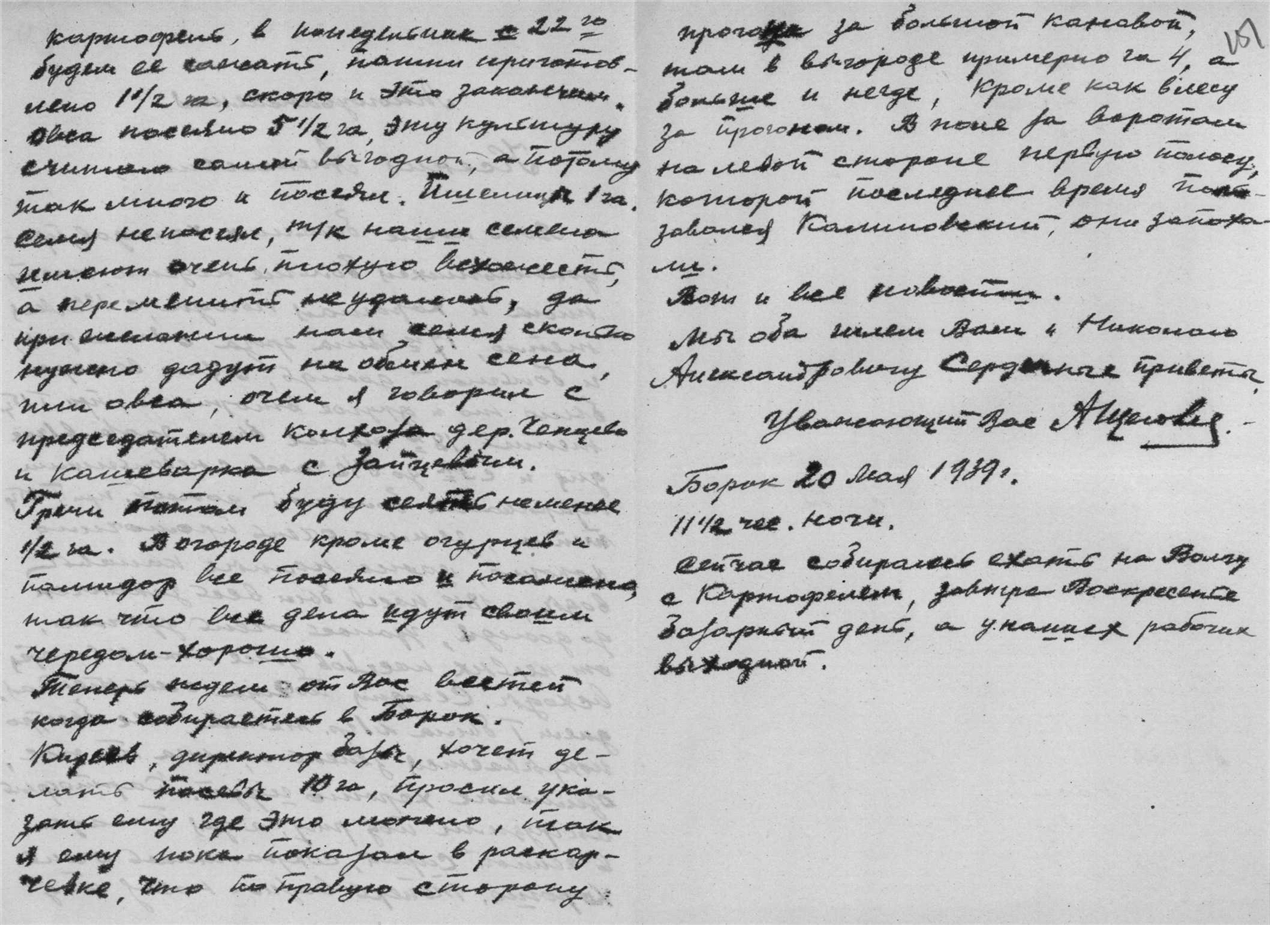 картофель, в понедельник с 22го
будем ее сажать, пашни приготов-
лено 1 1/2 га, скоро и это закончим.
Овса посеяно 5 1/2 га, эту культуру
считаю самой выгодной, а потому
так много и посеял. Пшеницы 1 га.
Семя непосеял, т/к наши семена
имеют очень плохую всхожесть,
а переменить неудалось, да
при желании нам семя сколько
нужно дадут на обмен сена,
или овса, очем я говорил с
председателем колхоза дер. Ченцево
и Кашеварка с Зайцевым.
Гречи потом буду сеять неменее
1/2 га. В огороде кроме огурцев и
памидор все посеяно и посажено,
так что все дела идут своим
чередом-хорошо.
Теперь ждем от Вас вестей
когда собираетесь в Борок.
Киреев, директор базы, хочет де-
лать посевы 10 га, просил ука-
зать ему где это можно, так
я ему пока показал в раскар-
чевке, что по правую сторону
151
прогона за большой канавой,
там в выгороде примерно га 4, а
больше и негде, кроме как влесу
за прогоном. В поле за воротами
на левой стороне первую полосу,
которой последнее время поль-
зовался Калиновский, они запаха-
ли.
Вот и все новости.
Мы оба шлем Вам и Николаю
Александровичу Сердечные приветы.
Уважающий Вас
Борок 20 Мая 1939 г.
11 1/2 час. ночи.
Сейчас собираюсь ехать на Волгу
с Картофелем, завтра Воскресенье
базарный день, а у наших рабочих
выходной.